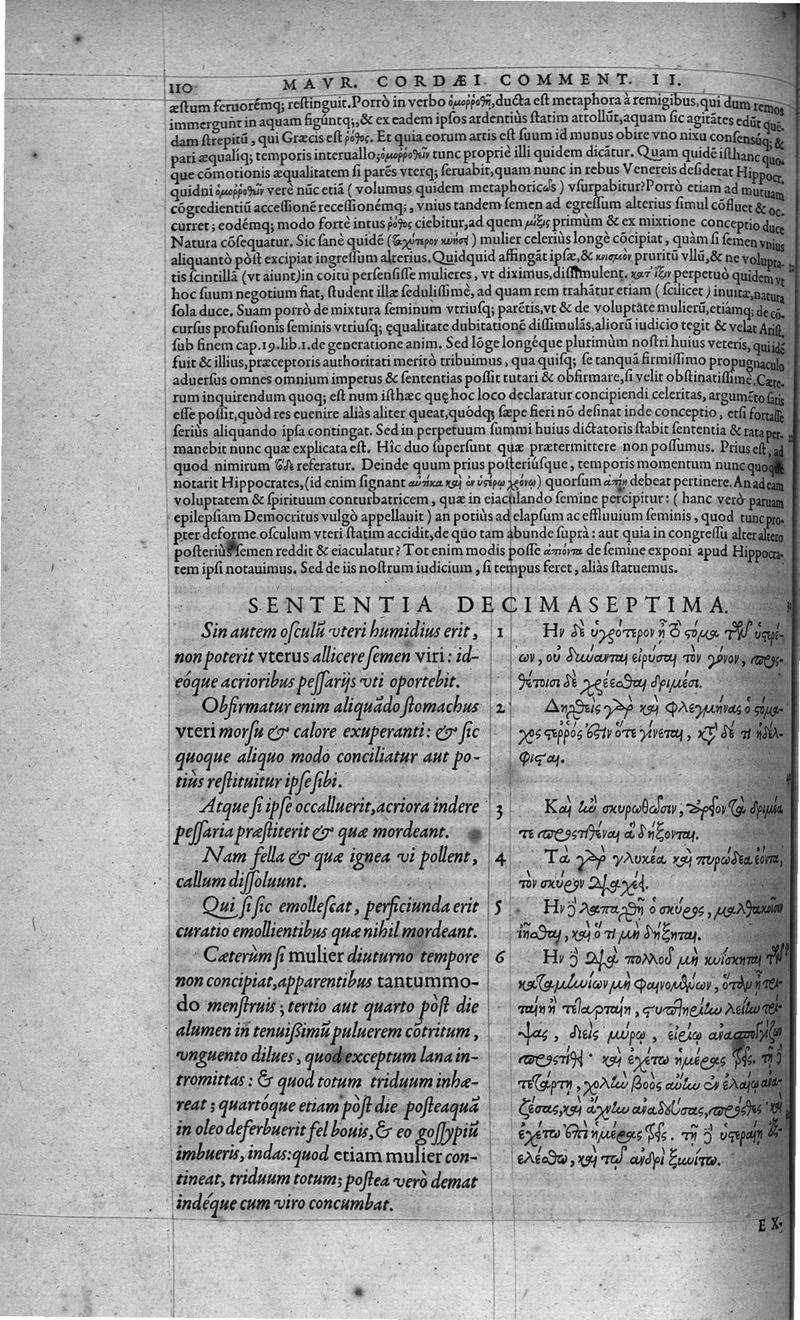 110 MAVR. CORDÆI COMMENT. II.
æstum feruorémq; restinguit. Porrò in verbo ὁμορῥοθῆ, ducta est metaphora à remigibus, qui dum remos
immergunt in aquam figũntq;, & ex eadem ipsos ardentiùs statim attollũt, aquam sic agitãtes edũt quẽ-
dam strepitũ, qui Græcis est ῥόθος. Et quia eorum artis est suum id munus obire vno nixu consensúq; &
pari æqualiq; temporis interuallo; ὁμορῥοθεῖν tunc propriè illi quidem dicãtur. Quam quidẽ isthanc quo-
que cõmotionis æqualitatem si parẽs vterq; seruabit, quam nunc in rebus Venereis desiderat Hippocr.
quidni ὁμορῥοθεῖν verè nũc etiã (volumus quidem metaphoricῶs) vsurpabitur? Porrò etiam ad mutuam
cõgredientiũ accessionẽ recessionémq;, vnius tandem semen ad egressum alterius simul cõfluet & oc-
curret; eodémq; modo fortè intus ῥόθος ciebitur, ad quem μίξις primùm & ex mixtione conceptio duce
Natura cõsequatur. Sic sanè quidẽ (ταχύτερον κυήσῃ) mulier celeriùs longè cõcipiat, quàm si semen vnius
aliquantò pòst excipiat ingressum alterius. Quidquid affingãt ipsæ, & κνισμὸν pruritũ vllũ, & ne volupta-
tis scintillã (vt aiunt) in coitu persensisse mulieres, vt diximus, dissimulent. κατ' ἕξιν perpetuò quidem vt
hoc suum negotium fiat, student illæ sedulissimè, ad quam rem trahãtur etiam (scilicet) inuitæ, natura
sola duce. Suam porrò de mixtura seminum vtriusq; parẽtis, vt & de voluptate mulierũ, etiámq; de cõ-
cursus profusionis seminis vtriusq; ęqualitate dubitationẽ dissimulãs, aliorũ iudicio tegit & velat Arist.
sub finem cap. 19. lib. 1. de generatione anim. Sed lõge longéque plurimùm nostri huius veteris, qui idẽ
fuit & illius, præceptoris authoritati meritò tribuimus, qua quisq; se tanquã firmissimo propugnaculo
aduersus omnes omnium impetus & sententias possit tutari & obfirmare, si velit obstinatissimè. Cæte-
rum inquirendum quoq; est num isthæc quę hoc loco declaratur concipiendi celeritas, argumẽto satis
esse possit, quòd res euenire aliàs aliter queat, quódq; sæpe fieri nõ desinat inde conceptio, etsi fortasse
seriùs aliquando ipsa contingat. Sed in perpetuum summi huius dictatoris stabit sententia & rata per-
manebit nunc quæ explicata est. Hîc duo supersunt quæ prætermittere non possumus. Prius est, ad
quod nimirum τόδε referatur. Deinde quum prius posteriúsque, temporis momentum nunc quoque
notarit Hippocrates, (id enim signant αὐτίκα καὶ ἐν ὑστέρῳ χρόνῳ) quorsum ἀπίῃ debeat pertinere. An ad eam
voluptatem & spirituum conturbatricem, quæ in eiaculando semine percipitur: (hanc verò paruam
epilepsiam Democritus vulgò appellauit) an potiùs ad elapsum ac effluuium seminis, quod tunc pro-
pter deforme osculum vteri statim accidit, de quo tam abunde suprà: aut quia in congressu alter altero
posteriùs semen reddit & eiaculatur? Tot enim modis posse ἀπιόντα de semine exponi apud Hippocra-
tem ipsi notauimus. Sed de iis nostrum iudicium, si tempus feret, aliàs statuemus.
SENTENTIA DECIMASEPTIMA.
Sin autem osculũ vteri humidius erit,
non poterit vterus allicere semen viri: id-
eóque acrioribus pessarijs vti oportebit.
Obfirmatur enim aliquãdo stomachus
vteri morsu & calore exuperanti: & sic
quoque aliquo modo conciliatur aut po-
tiùs restituitur ipse sibi.
Atque si ipse occalluerit, acriora indere
pessaria præstiterit & quæ mordeant.
Nam fella & quæ ignea vi pollent,
callum dissoluunt.
Qui si sic emollescat, perficiunda erit
curatio emollientibus quæ nihil mordeant.
Cæterùm si mulier diuturno tempore
non concipiat, apparentibus tantummo-
do menstruis; tertio aut quarto pòst die
alumen in tenuißimũ puluerem cõtritum,
vnguento dilues, quod exceptum lana in-
tromittas: & quod totum triduum inhæ-
reat; quartóque etiam pòst die posteaquã
in oleo deferbuerit fel bouis, & eo gossypiũ
imbueris, indas: quod etiam mulier con-
tineat, triduum totum; postea verò demat
indéque cum viro concumbat.
1 Ἢν δὲ ὑγρότερον ᾖ τὸ στόμα τῶν ὑστερέ-
ων, οὐ δύνανται εἰρύσαι τὸν γόνον, προσ-
θέτοισι δὲ χρέεσθαι δριμέσι.
2 Δηχθεὶς γὰρ καὶ φλεγμήνας ὁ στόμα-
χος στερρός ἐστιν ὅτε γίνεται, κατὰ δέ τι ἠδέλ-
φισται.
3 Καὶ ἢν σκυρωθῶσιν, ἄρηγον τὰ δριμέα
τε προστιθέναι ἃ δήξονται.
4 Τὰ γὰρ γλυκέα καὶ πυρώδεα ἐόντα,
τὸν σκύρον διαχέει.
5 Ἢν δὲ λαπαχθῇ ὁ σκύρος, μαλθακοῖσιν
ἰῆσθαι, καὶ ὅ τι μὴ δήξηται.
6 Ἢν δὲ διὰ πολλοῦ μὴ κυΐσκηται τῶν
καταμηνίων μὴ φαινομένων, ὅταν ᾖ τρι-
ταίη ἢ τεταρταίη, στυπτηρίην λείην τρί-
ψας, διεὶς μύρῳ, εἰρίῳ ἀνασπογγίζων
προστίθει· καὶ ἐχέτω ἡμέρας τρεῖς. τῇ δὲ
τετάρτῃ, χολὴν βοὸς αὔην ἐν ἐλαίῳ ἀνα-
ζέσας, καὶ ἄχνην ἀναδεύσας, πρόσθες καὶ
ἐχέτω ἐπὶ ἡμέρας τρεῖς. τῇ δὲ ὑστεραίῃ ἐξ-
ελέσθω, καὶ τῷ ἀνδρὶ ξυνίτω.
EX